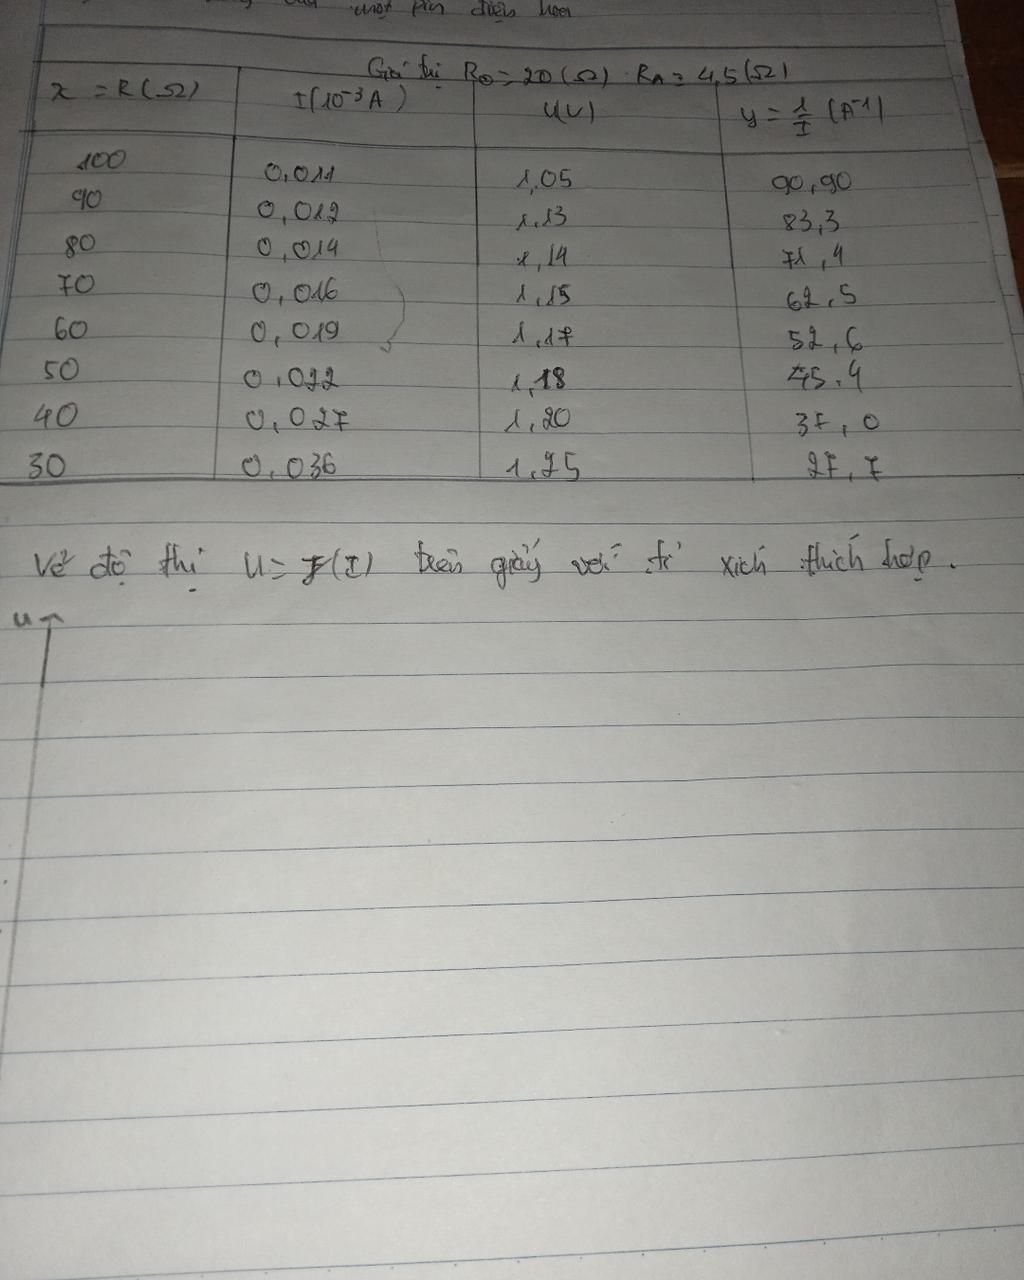 một pin điện hoá
Giá trị R₀ = 20 (Ω) R_A = 4,5 (Ω)
x = R (Ω) I (10⁻³ A) U(V) y = 1/I (A⁻¹)
100 0,011 1,05 90,90
90 0,012 1,13 83,3
80 0,014 1,14 71,4
70 0,016 1,15 62,5
60 0,019 1,17 52,6
50 0,022 1,18 45,4
40 0,027 1,20 37,0
30 0,036 1,25 27,7
Vẽ đồ thị U = f(I) trên giấy với tỉ xích thích hợp.
U